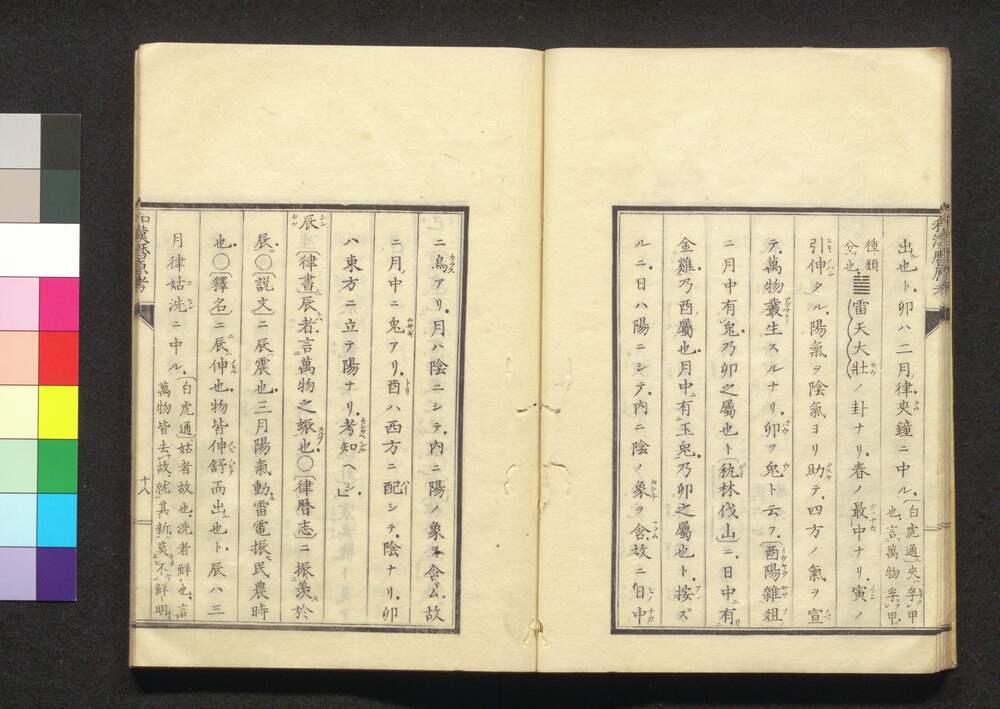 出ル也ト卯ハ二月律夾鐘ニ中ル〔白虎通〕夾ハ孚甲也言萬物孚甲
種類分ツ也䷡(雷天大壯)ノ卦ナリ春ノ最中ナリ寅ノ
引伸タル陽氣ヲ陰氣ヨリ助テ四方ノ氣ヲ宣
テ萬物叢生スルナリ卯ヲ兔ト云フ〔酉陽雜俎〕
ニ月中有兔乃卯之屬也ト〔秇林伐山〕ニ日中有
金雞乃酉屬也月中有玉兔乃卯之屬也ト按ズ
ルニ日ハ陽ニシテ內ニ陰ノ象ヲ含故ニ日中
ニ烏アリ月ハ陰ニシテ內ニ陽ノ象ヲ含ム故
ニ月中ニ兔アリ酉ハ西方ニ配シテ陰ナリ卯
ハ東方ニ立テ陽ナリ考知ヘシ
辰〔律書〕辰者言萬物之蜄也〇〔律曆志〕ニ振羨於
辰〇〔說文〕ニ辰震也三月陽氣動雷電振民農時
也〇〔釋名〕ニ辰伸也物皆伸舒而出也ト辰ハ三
月律姑洗ニ中ル〔白虎通〕姑者故也洗者鮮也言萬物皆去故就其新莫不鮮明
和漢曆原考
十八